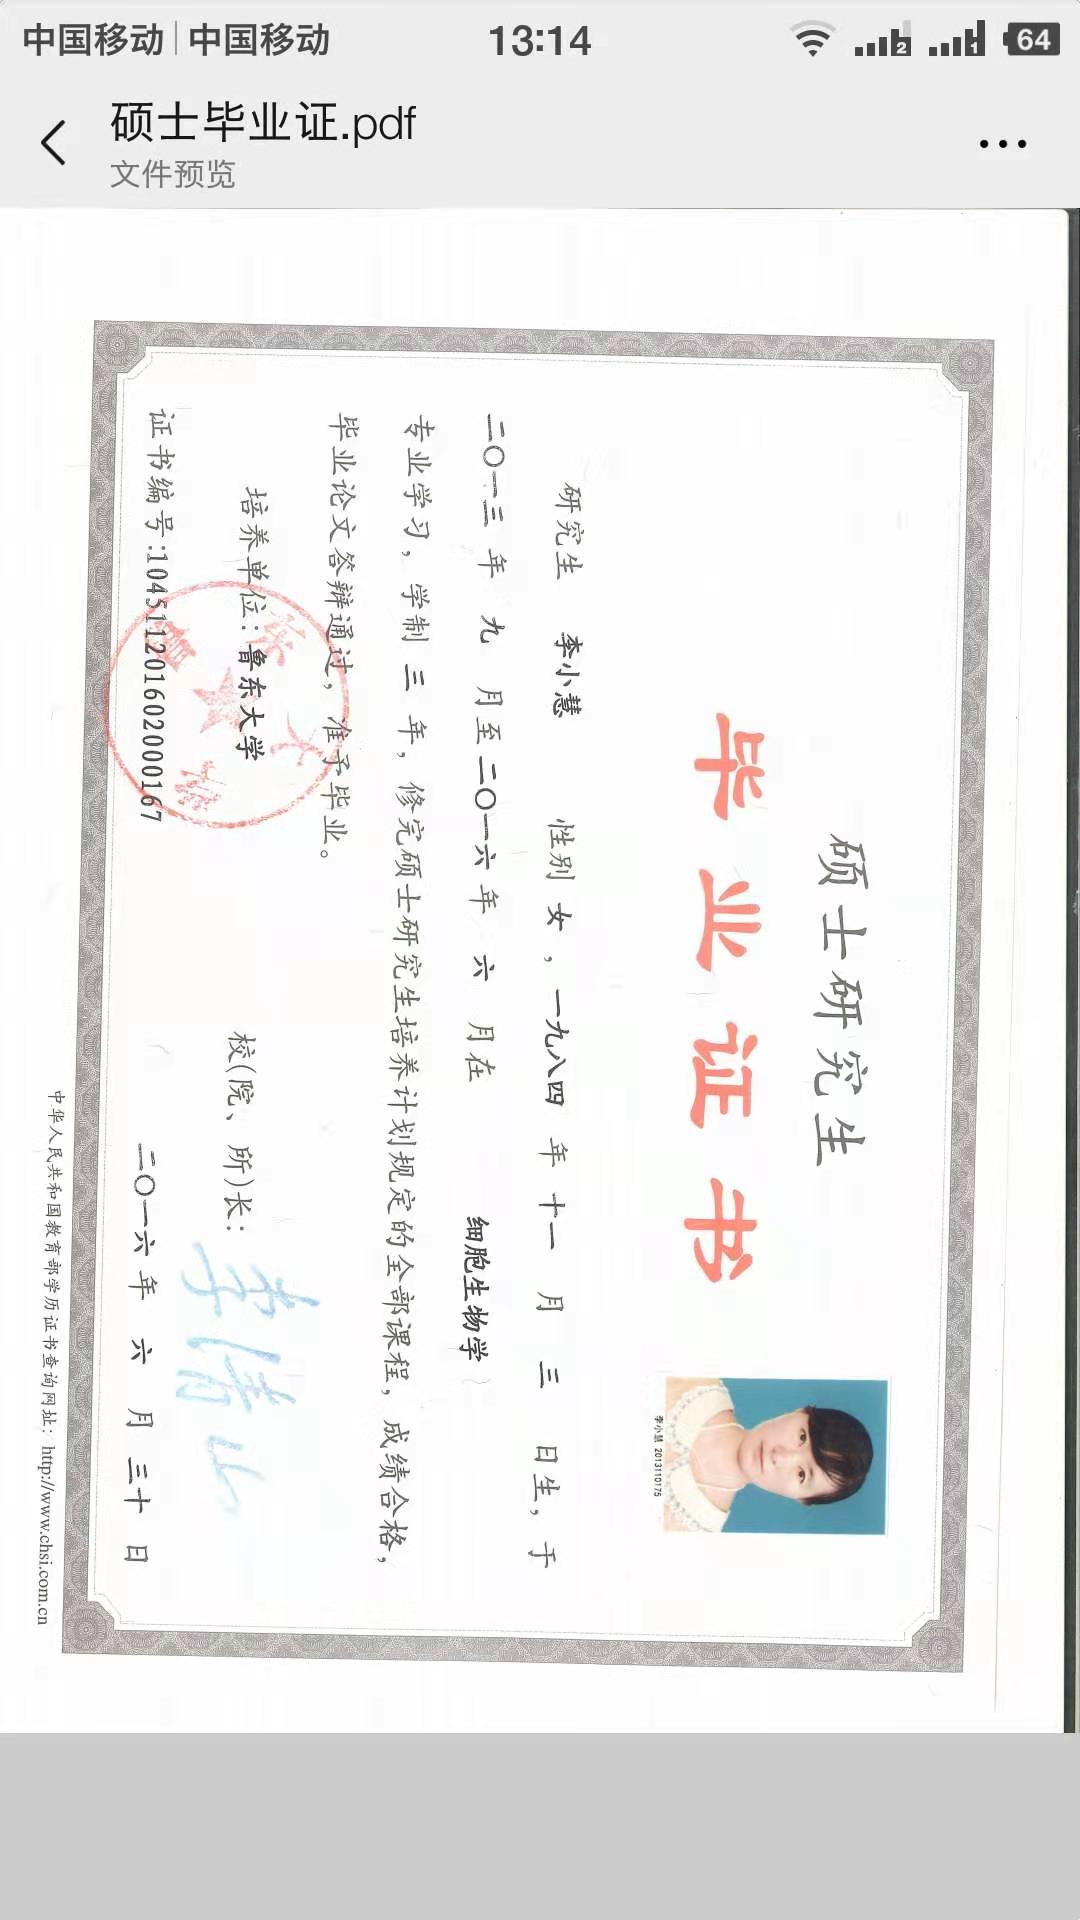 中国移动 中国移动 13:14 2 1 64
硕士毕业证.pdf
文件预览
硕士研究生
毕业证书
李小慧 2013110175
研究生 李小慧 性别 女，一九八四 年 十一 月 三 日生，于
二〇一三 年 九 月至二〇一六年 六 月在 细胞生物学
专业学习，学制 三 年，修完硕士研究生培养计划规定的全部课程，成绩合格，
毕业论文答辩通过，准予毕业。
培养单位：鲁东大学
校(院、所)长：李清山
证书编号:104511201602000167
二〇一六年 六 月 三十 日
中华人民共和国教育部学历证书查询网址：http://www.chsi.com.cn